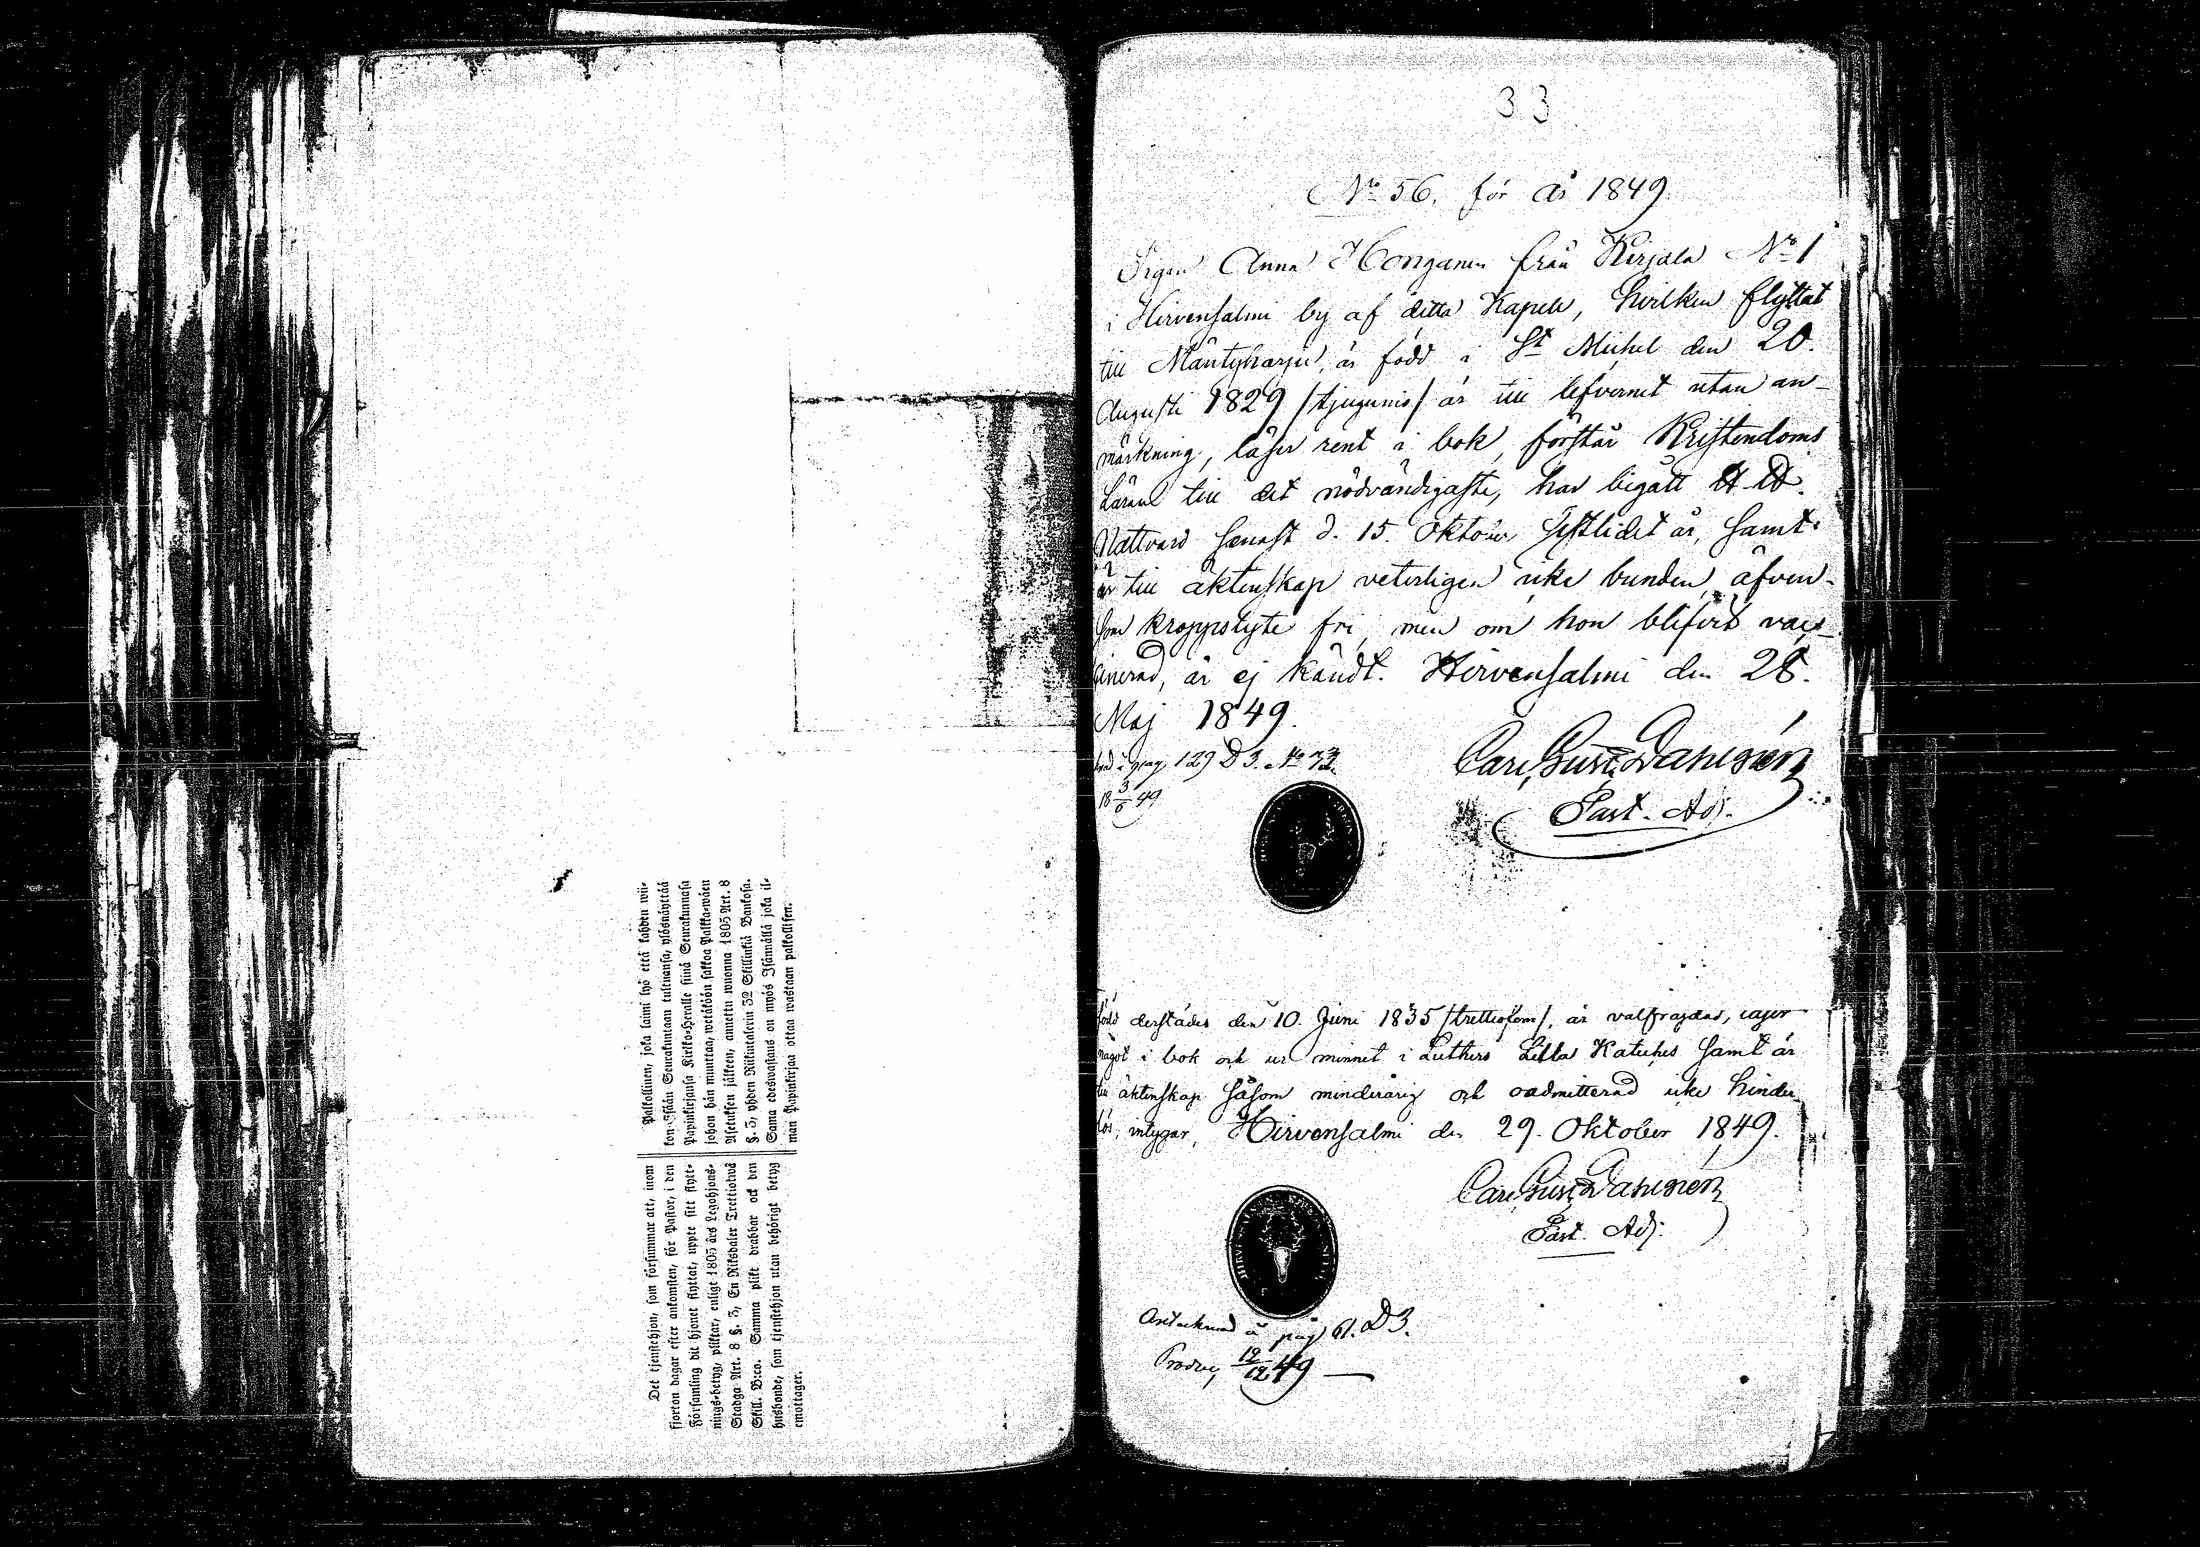 Palkollinen, joka laimi lyö että kahden wii-
kon sisään Seurakuntaan tultuansa, ylösnäyttää
Papinkirjansa Kirkko-Herralle siinä Seurakunnasa
johon hän muuttaa, wetäköön sakkoa Palkka-wäen
Asetuksen jälkeen, annettu wuonna 1805 Art. 8
§. 3, yhden Riikintalerin 32 Skillinkiä Bankosa.
Sama edeswastaus on myös Isännällä joka il-
man Papinkirjaa ottaa wastaan palkollisen.
Det tjenstehjon, som försummar att, inom
fjorton dagar efter ankomsten, för Pastor, i den
Församling dit hjonet flyttat, uppte sitt flytt-
nings-betyg, pliktar, enligt 1805 års Legohjons-
Stadga Art. 8 §. 3, En Riksdaler Trettiotvå
Skill. B:co. Samma plikt drabbar ock den
husbonde, som tjenstehjon utan behörigt betyg
emottager.
33
No 56. för år 1849.
Pigan Anna Honganen från Kirjala No 1
i Hirvensalmi by af detta Kapell, hvilken flyttat
till Mäntyharju, är född i St Michel den 20.
Augusti 1829 /tjugunio/ är till lefvernet utan an-
märkning, läser rent i bok, förstår Kristendoms
Läran till det nödvändigaste, har begått H. H.
Nattvard senast d. 15. Oktober sistlidet år, samt
är till äktenskap veterligen icke bunden, äfven-
som kroppslyte fri, men om hon blifvit vacc-
inerad, är ej kändt. Hirvensalmi den 28.
Maj 1849.
pag 129 D 3. No 73.
18 3/6 49
Carl Gust. Dahlgrén
Past. Adj.
född derstädes den 10. Juni 1835 /trettiofem/, är välfrejdad, läser
något i bok och ur minnet i Luthers Lilla Kateches samt är
till äktenskap såsom minderårig och oadmitterad icke hinder-
lös, intygar, Hirvensalmi den 29. Oktober 1849.
Carl Gust. Dahlgrén
Past. Adj.
HIRVENSALMI
Antecknad å pag 61. D3.
12/12 49